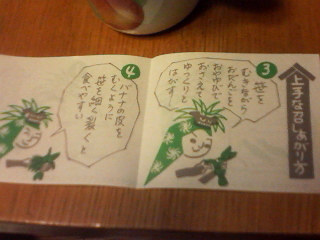 上手な召しあがり方
③
笹を
むきながら
おだんごを
おやゆびで
おさえて
ゆっくりと
はがす!
④
バナナの皮を
むくように
笹を細く裂くと
食べやすい